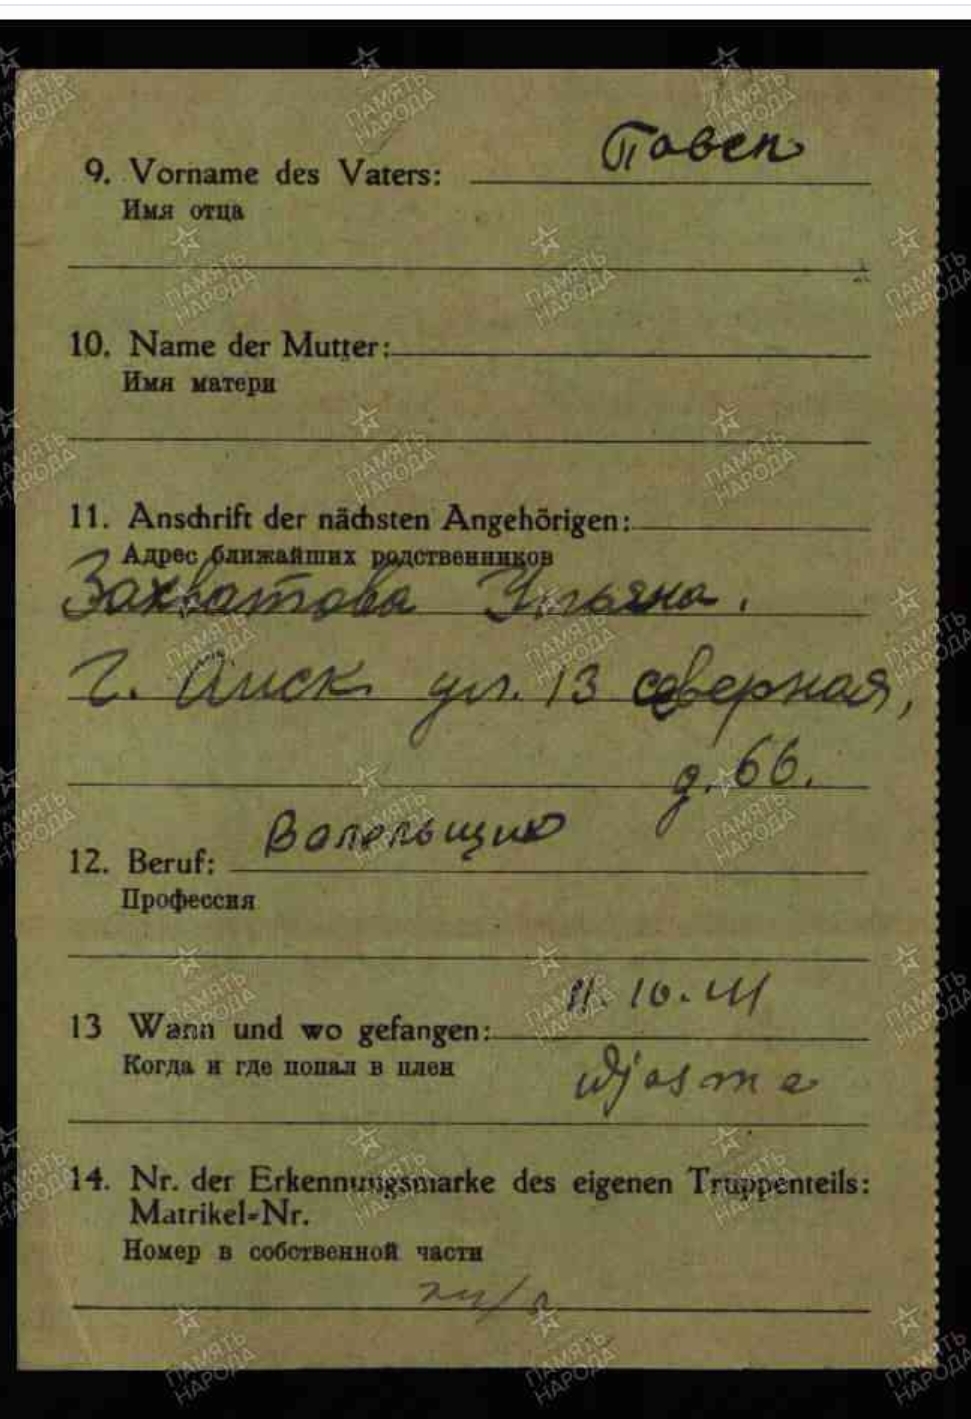 Павел
9. Vorname des Vaters:
Имя отца
10. Name der Mutter:
Имя матери
11. Anschrift der nächsten Angehörigen:
Адрес ближайших родственников
Захватова Ульяна.
г. Омск ул. 13 северная,
д. 66.
Валельщик
12. Beruf:
Профессия
11. 10. 41
13 Wann und wo gefangen:
Когда и где попал в плен
Wjasma
14. Nr. der Erkennungsmarke des eigenen Truppenteils:
Matrikel-Nr.
Номер в собственной части
ПАМЯТЬ НАРОДА